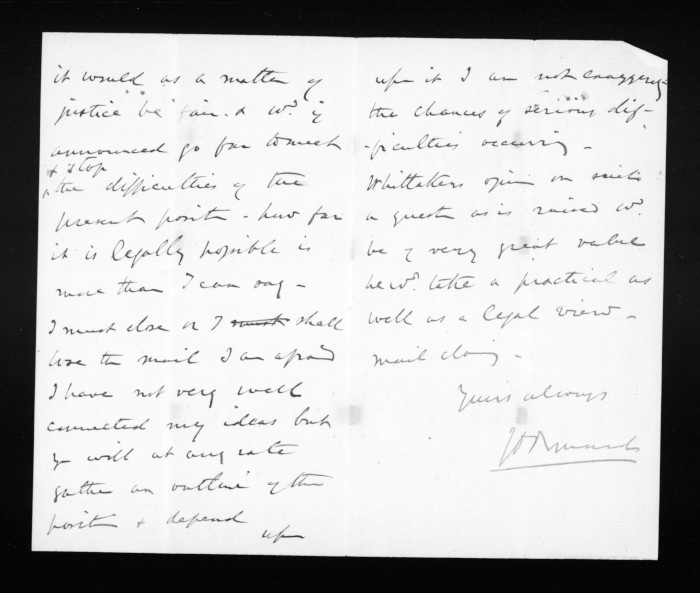 it would as a matter of
justice be fair & wd. if
announced go far to meet
& stop
the difficulties of the
present positn - how far
it is legally possible is
more than I can say -
I must close or I must shall
lose the mail I am afraid
I have not very well
connected my ideas but
yr will at any rate
gather an outline of the
positn & depend
upon
upon it I am not exaggeratg
the chances of serious dif-
-ficulties occurring -
Whittakers opinn on such
a questn as is raised wd.
be of very great value
he wd. take a practical as
well as a legal view -
mail closing -
Yours always